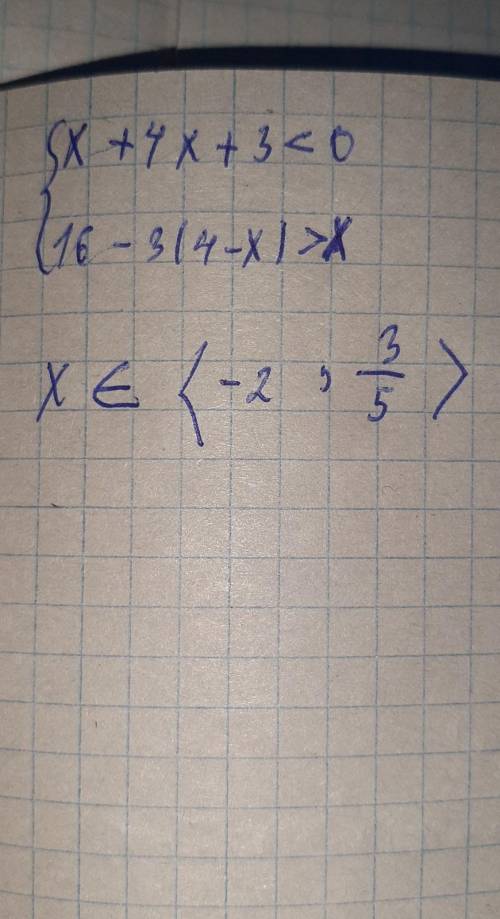 {x + 4x + 3 < 0
{16 - 3(4 - x) > x
x ∈ ⟨-2 , 3/5⟩